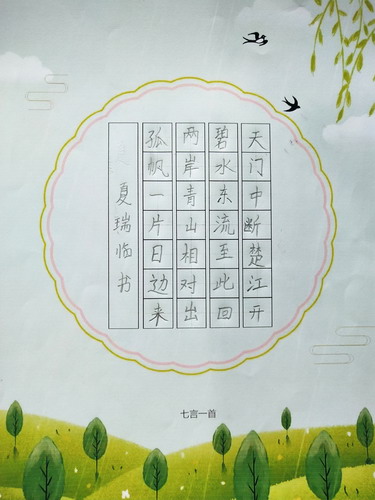 天门中断楚江开
碧水东流至此回
两岸青山相对出
孤帆一片日边来
夏瑞临书
七言一首